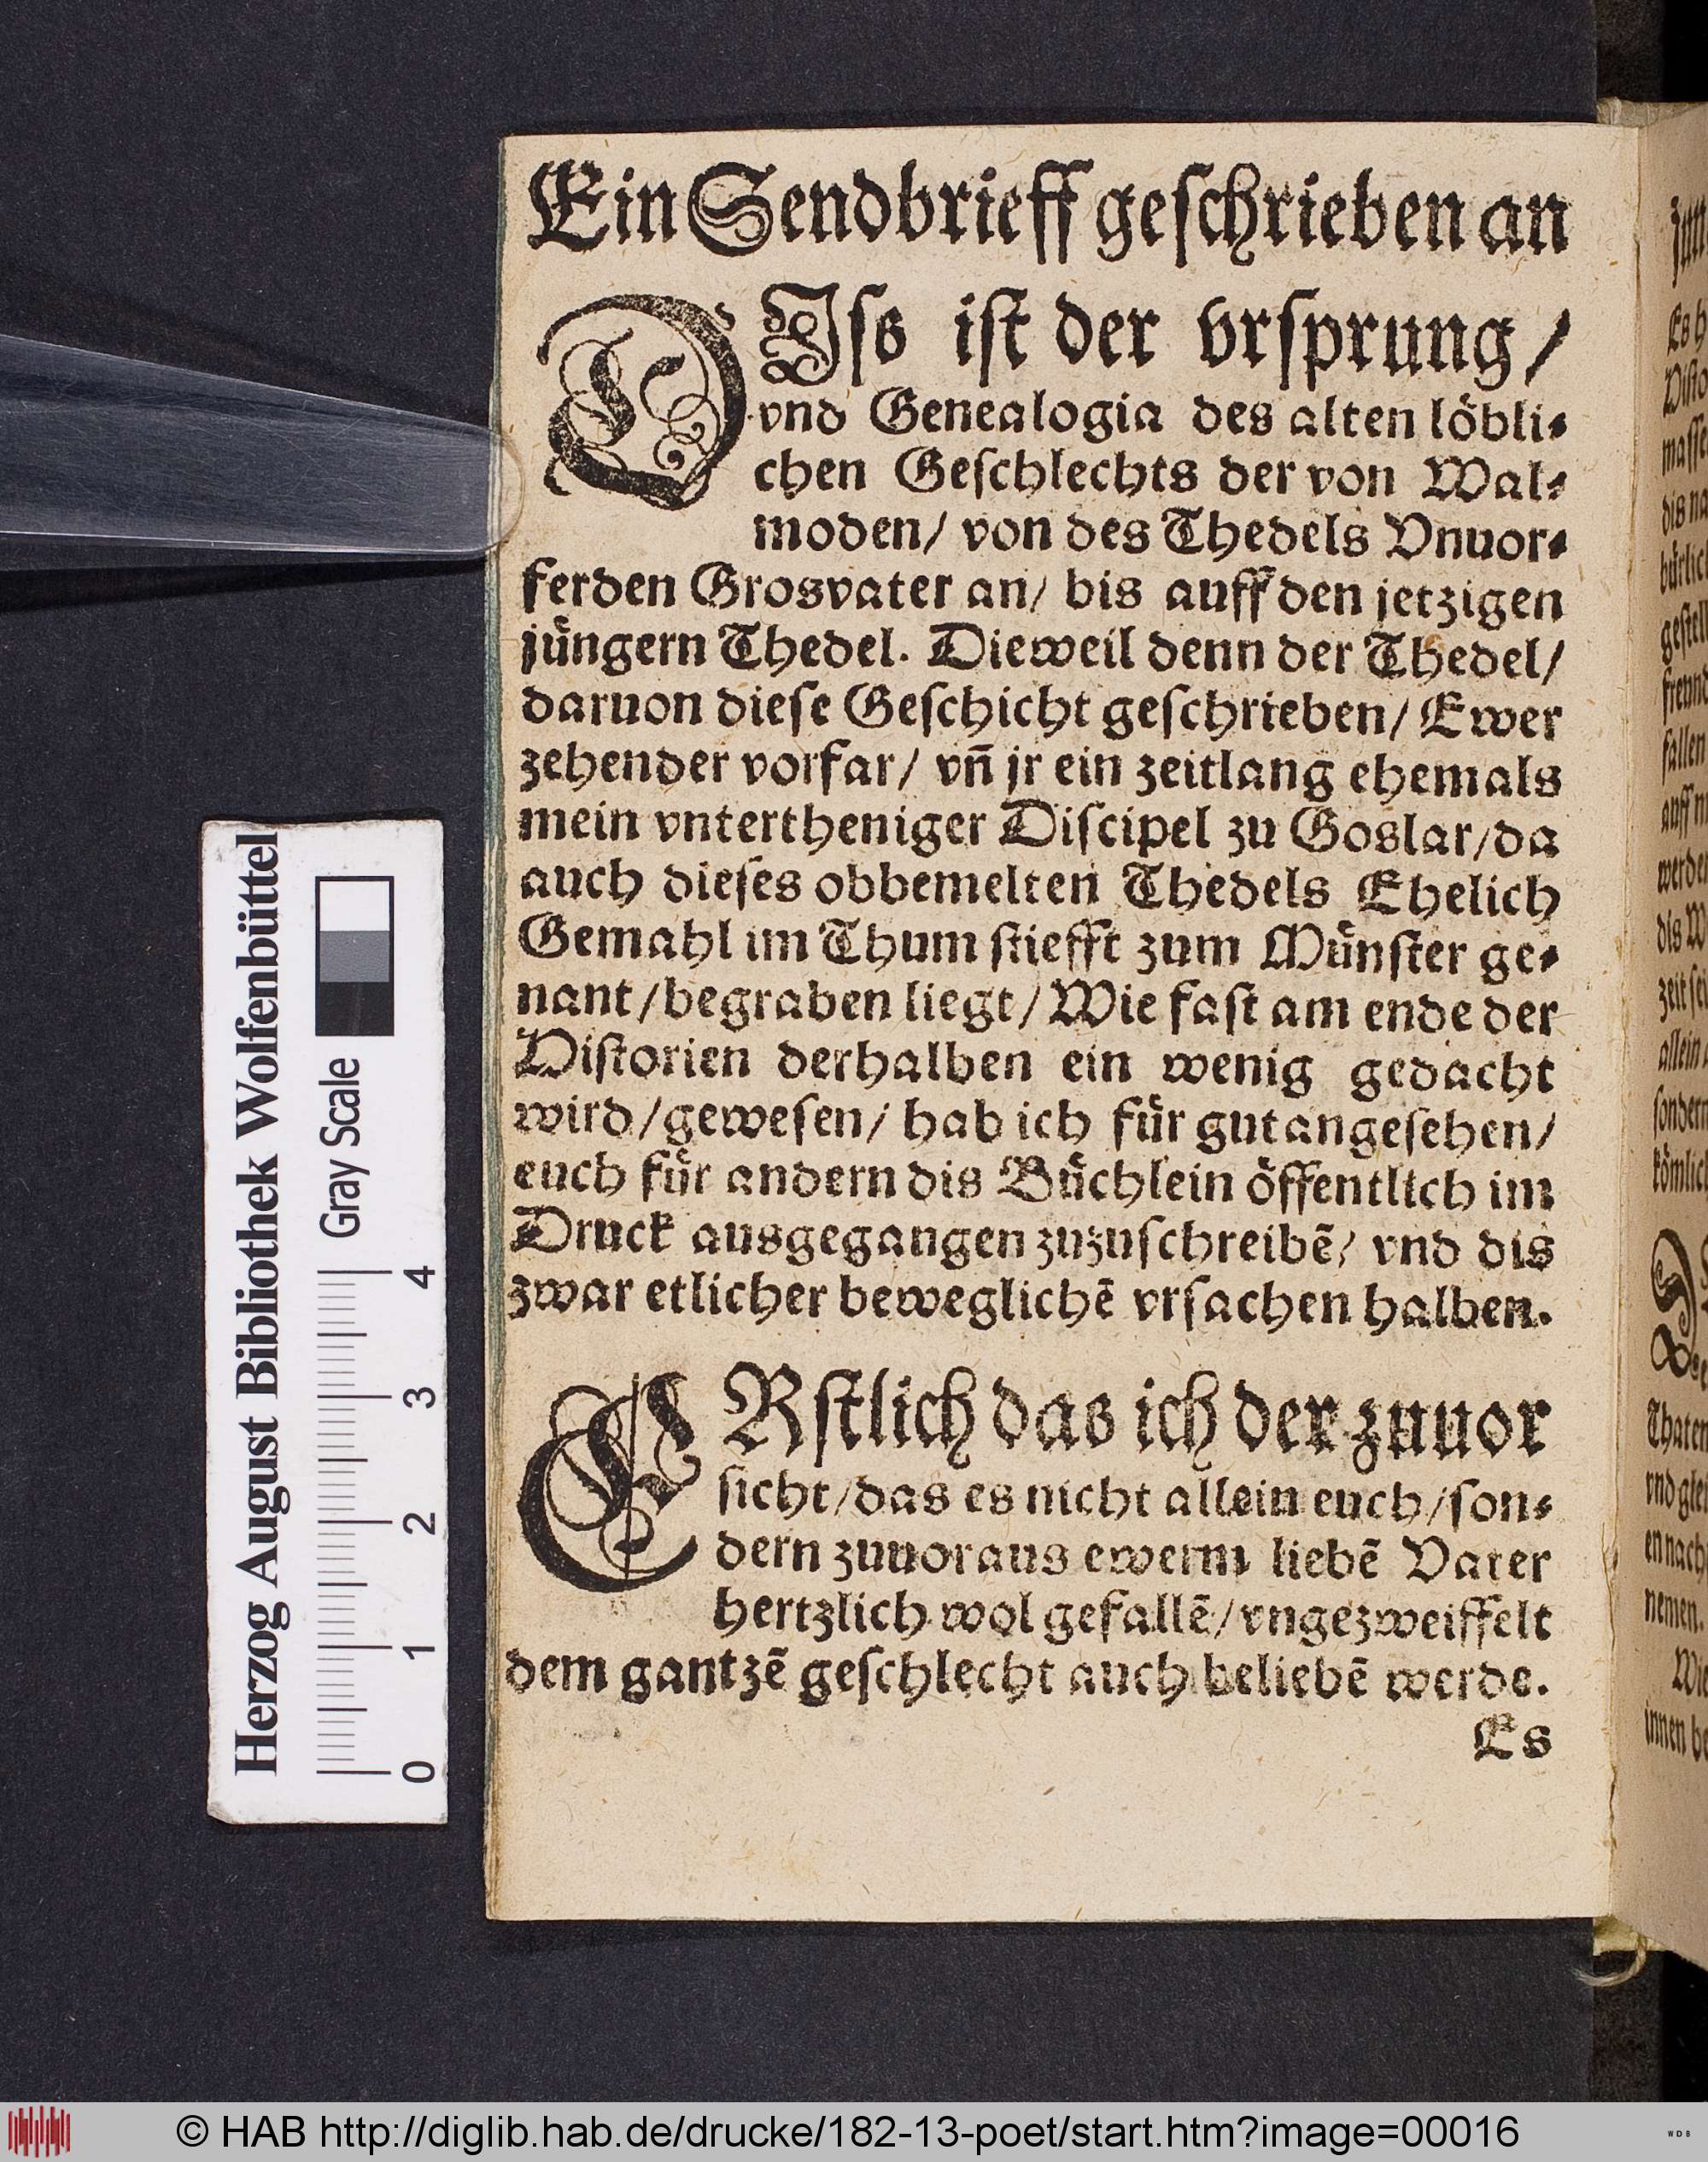 Ein Sendbrieff geschrieben an
DIss ist der vrsprung/
vnd Genealogia des alten löbli⸗
chen Geschlechts der von Wal⸗
moden/ von des Thedels Vnuor⸗
ferden Grosvater an/ bis auff den jetzigen
jüngern Thedel. Dieweil denn der Thedel/
daruon diese Geschicht geschrieben/ Ewer
zehender vorfar/ vñ jr ein zeitlang ehemals
mein vntertheniger Discipel zu Goslar/ da
auch dieses obbemelten Thedels Ehelich
Gemahl im Thum stiefft zum Münster ge⸗
nant/ begraben liegt/ Wie fast am ende der
Historien derhalben ein wenig gedacht
wird/ gewesen/ hab ich für gut angesehen/
euch für andern dis Büchlein öffentlich im
Druck ausgegangen zuzuschreibẽ/ vnd dis
zwar etlicher beweglichẽ vrsachen halben.
ERstlich das ich der zuuor
sicht/ das es nicht allein euch/ son⸗
dern zuuoraus ewerm liebẽ Vater
hertzlich wol gefallẽ/ vngezweiffelt
dem gantzẽ geschlecht auch beliebẽ werde.
Es
Herzog August Bibliothek Wolfenbüttel
Gray Scale
0 1 2 3 4
© HAB http://diglib.hab.de/drucke/182-13-poet/start.htm?image=00016
WDB